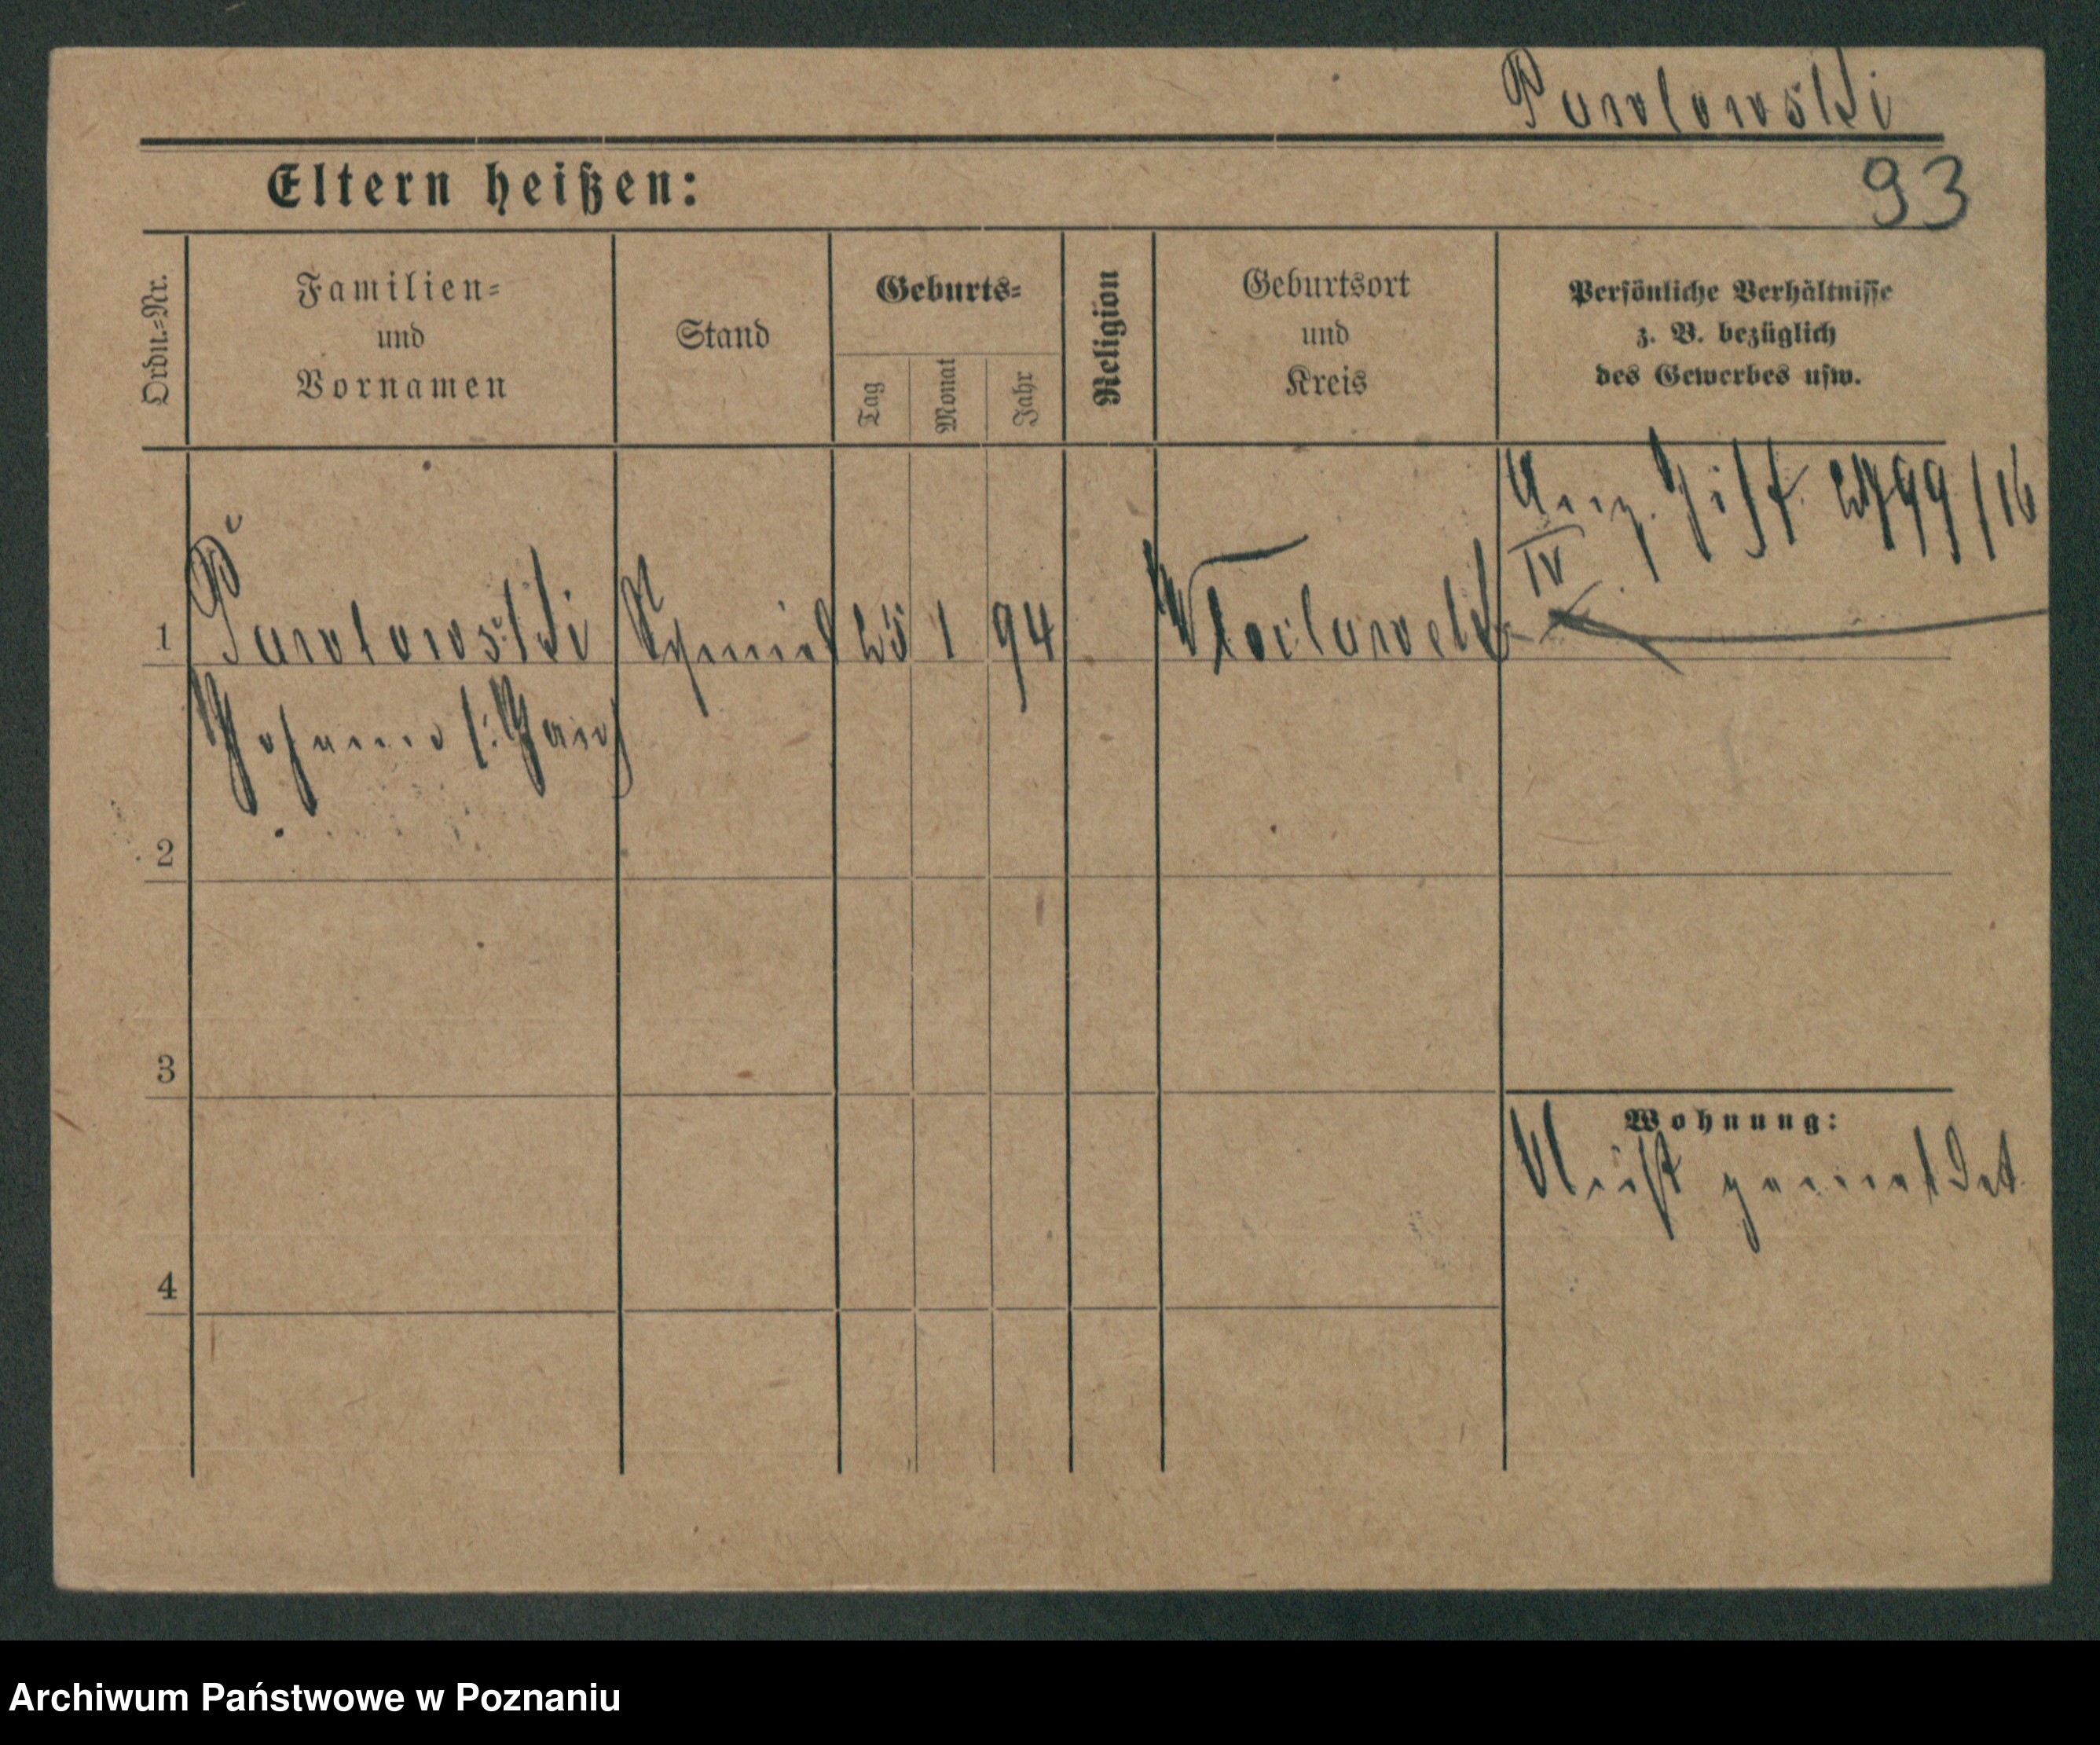 Pawlowski
Eltern heißen:
93
Ordn.-Nr.
Familien-
und
Vornamen
Stand
Geburts-
Tag
Monat
Jahr
Religion
Geburtsort
und
Kreis
Persönliche Verhältnisse
z. B. bezüglich
des Gewerbes usw.
1
Pawlowski
Schmied
25
1
94
Wloclawek
IV
2
3
Wohnung:
Nicht gemeldet
4
Archiwum Państwowe w Poznaniu